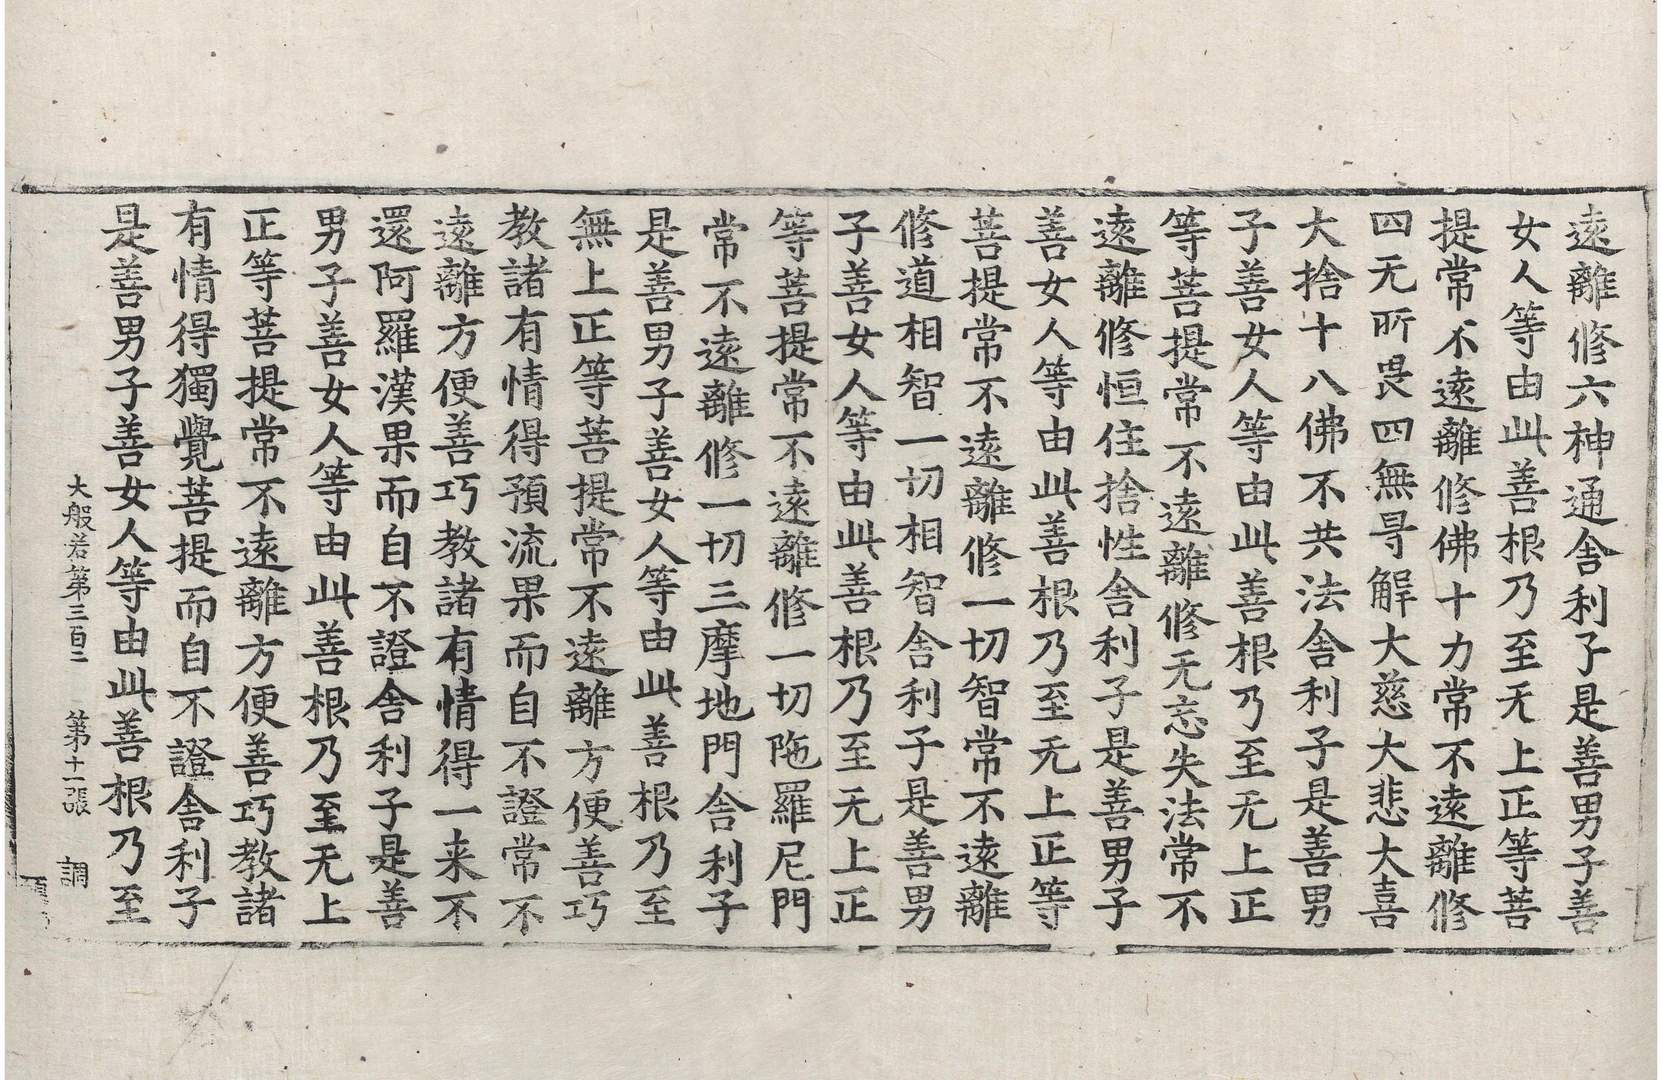 遠離修六神通舍利子是善男子善
女人等由此善根乃至无上正等菩
提常不遠離修佛十力常不遠離修
四无所畏四無㝵解大慈大悲大喜
大捨十八佛不共法舍利子是善男
子善女人等由此善根乃至无上正
等菩提常不遠離修无忘失法常不
遠離修恒住捨性舍利子是善男子
善女人等由此善根乃至无上正等
菩提常不遠離修一切智常不遠離
修道相智一切相智舍利子是善男
子善女人等由此善根乃至无上正
等菩提常不遠離修一切陁羅尼門
常不遠離修一切三摩地門舍利子
是善男子善女人等由此善根乃至
無上正等菩提常不遠離方便善巧
教諸有情得預流果而自不證常不
遠離方便善巧教諸有情得一来不
還阿羅漢果而自不證舍利子是善
男子善女人等由此善根乃至无上
正等菩提常不遠離方便善巧教諸
有情得獨覺菩提而自不證舍利子
是善男子善女人等由此善根乃至
大般若第三百二 第十一張 調